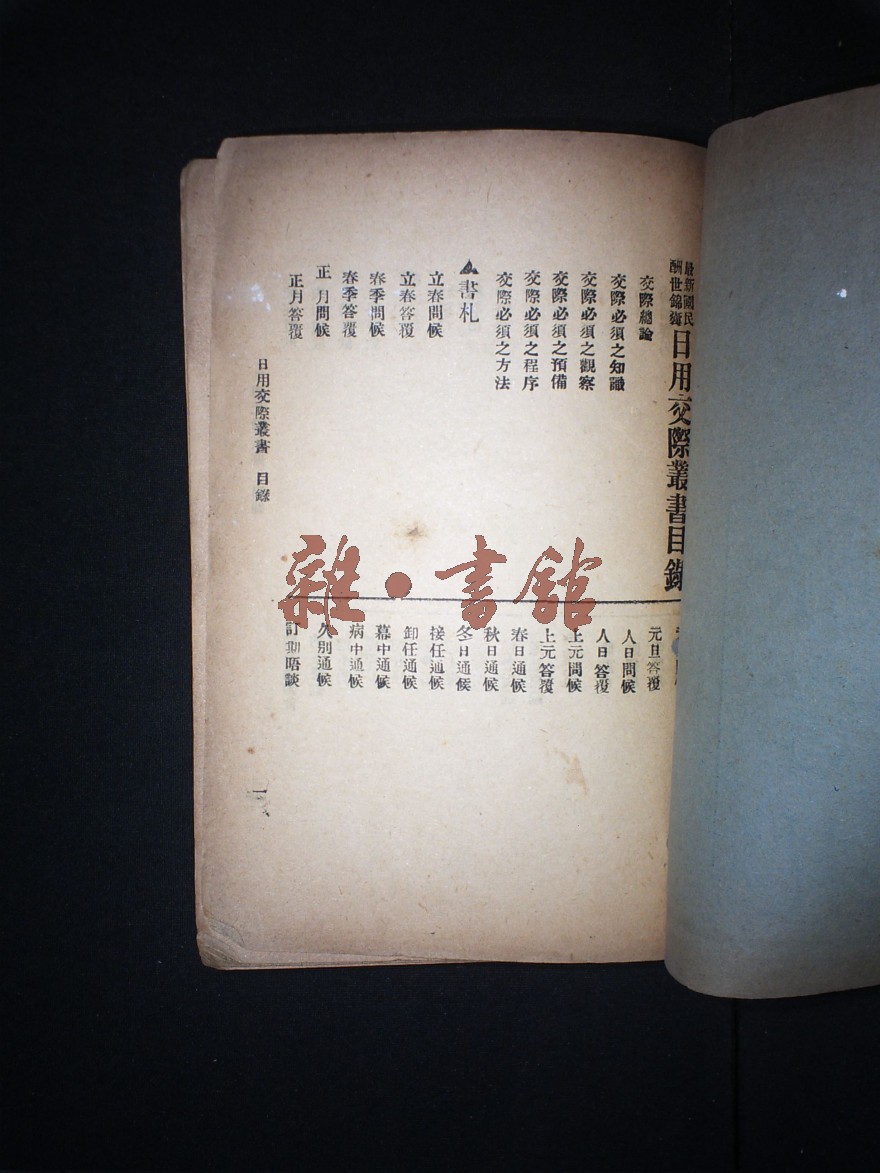 最新國民
酬世錦囊
日用交際叢書目錄
交際總論
交際必須之知識
交際必須之觀察
交際必須之預備
交際必須之程序
交際必須之方法
書札
立春問候
立春答覆
春季問候
春季答覆
正月問候
正月答覆
元旦答覆
人日問候
人日答覆
上元問候
上元答覆
春日通候
秋日通候
冬日通候
接任通候
卸任通候
幕中通候
病中通候
久別通候
訂期晤談
日用交際叢書 目錄
一
雜·書館